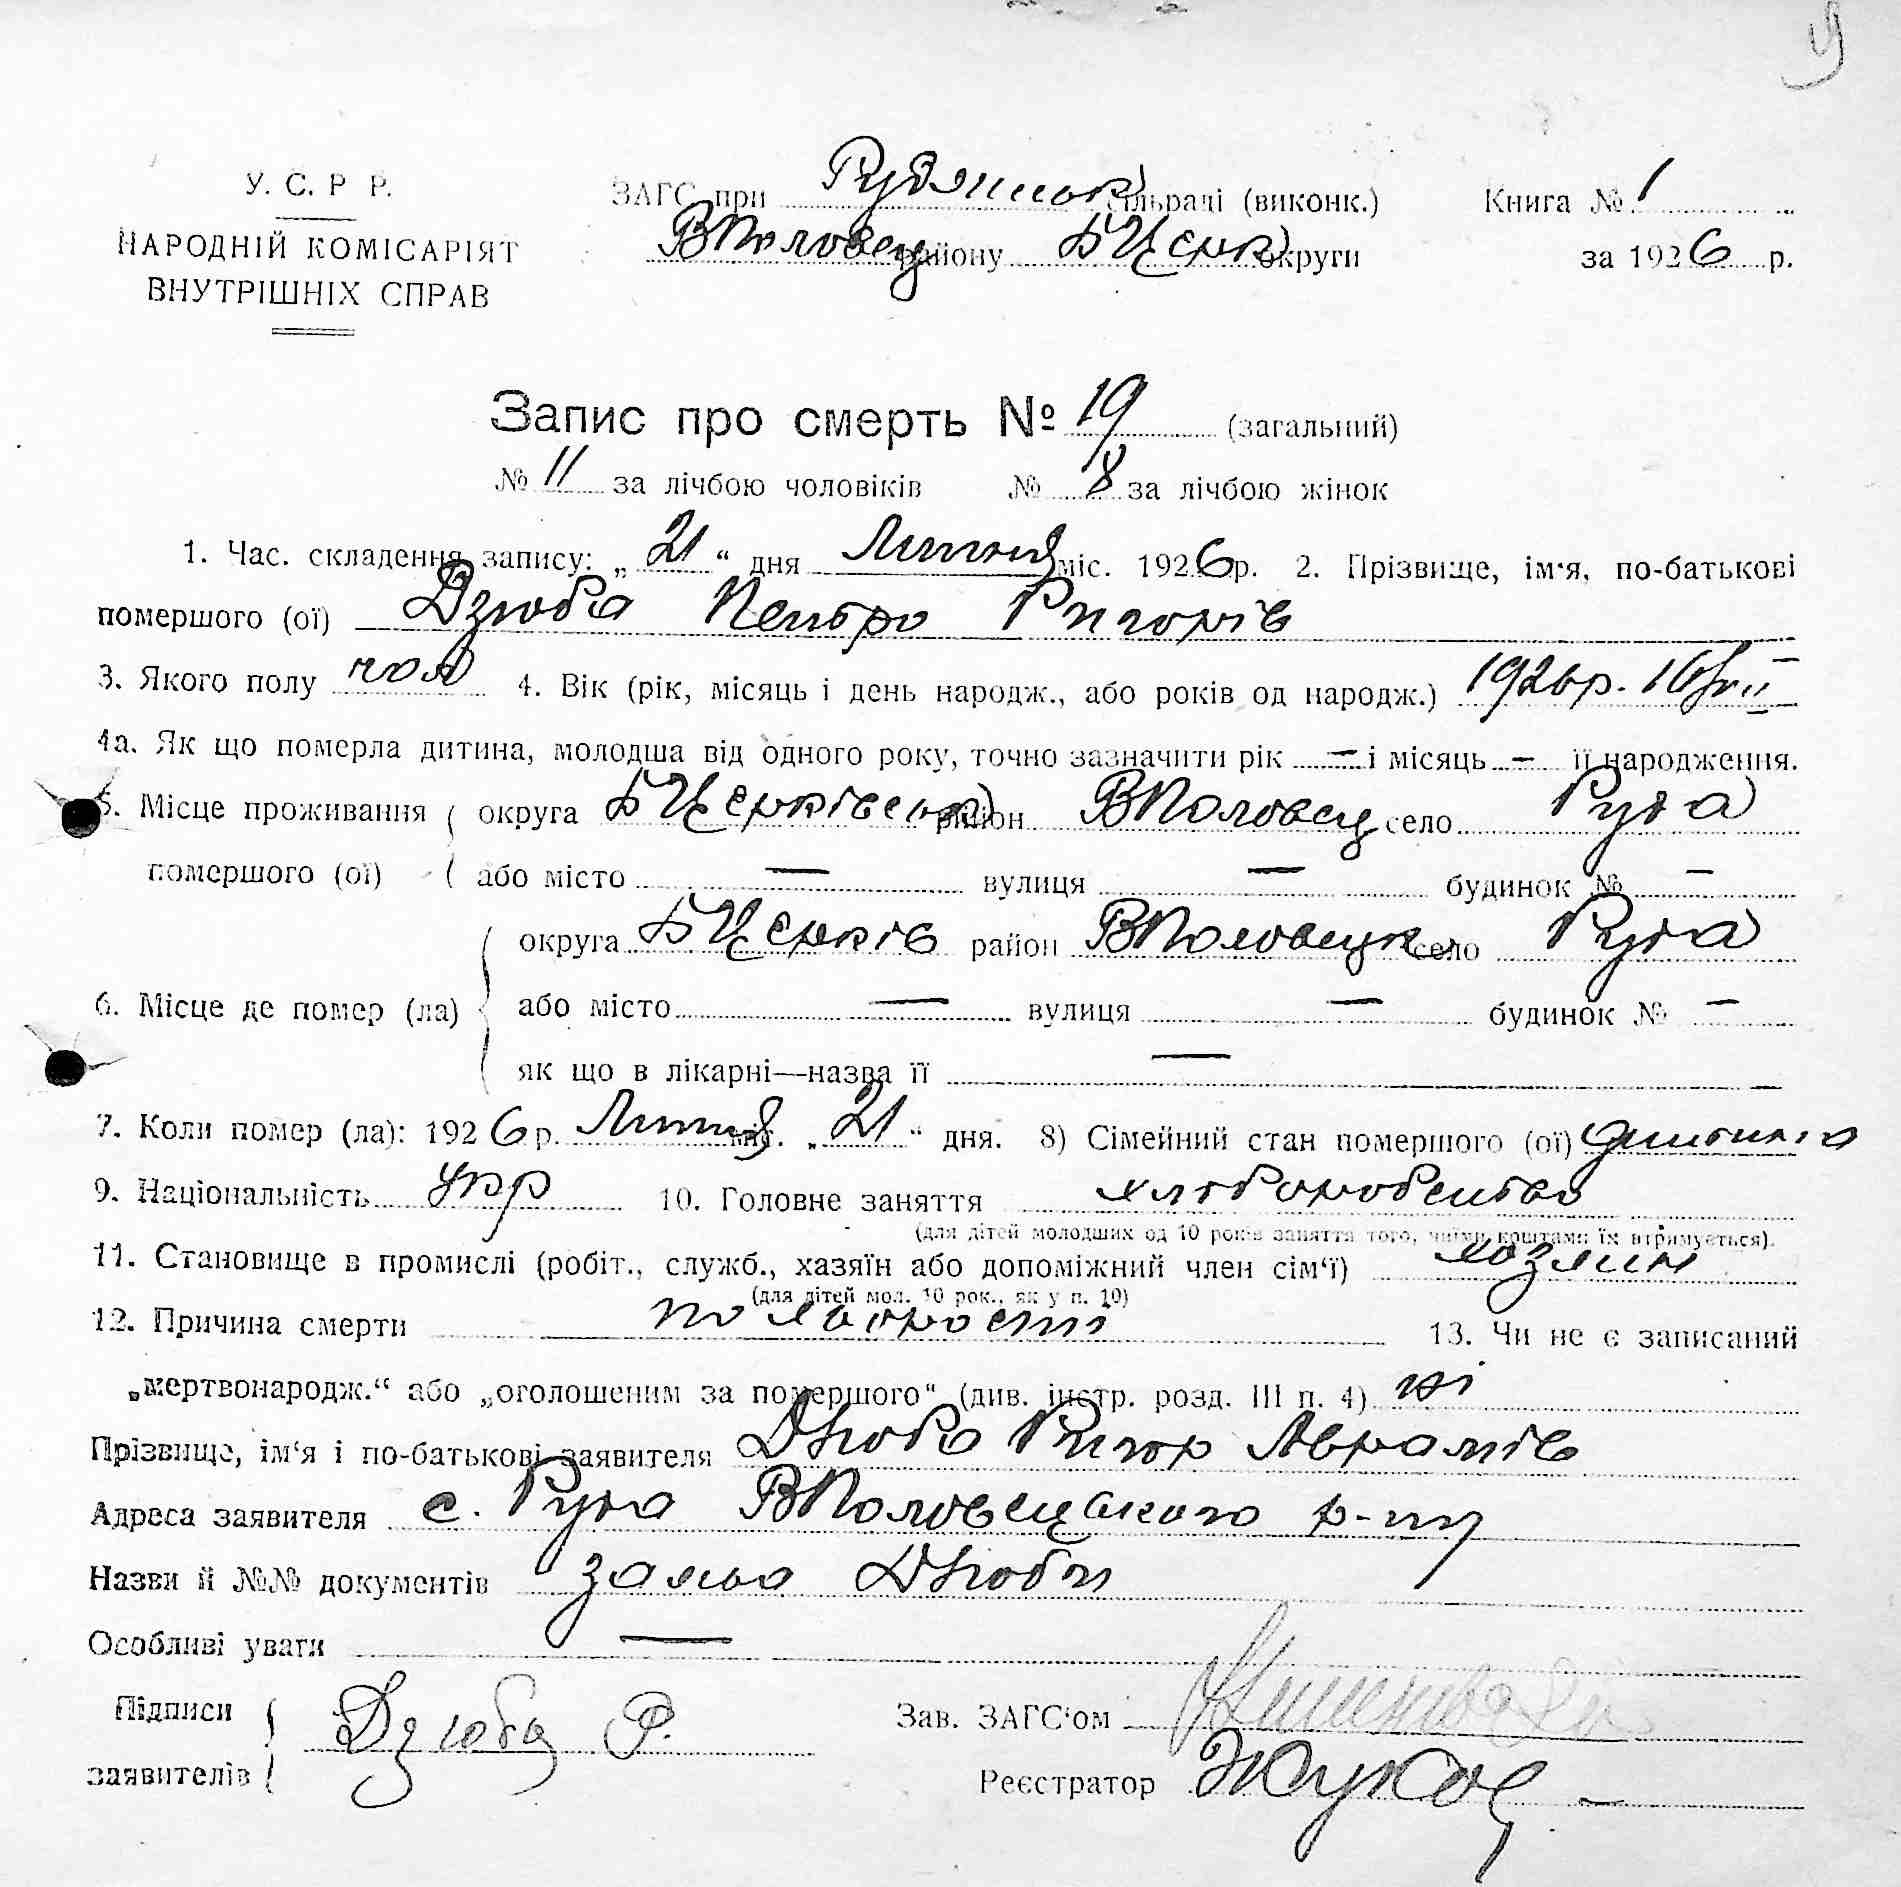 У. С. Р Р.
НАРОДНІЙ КОМІСАРІЯТ
ВНУТРІШНІХ СПРАВ
ЗАГС при Рудянськ сільраді (виконк.)
ВПоловец району БЦерк округи
Книга № 1
за 1926 р.
Запис про смерть № 19 (загальний)
№ 11 за лічбою чоловіків № 8 за лічбою жінок
1. Час. складення запису: „21“ дня Липня міс. 1926 р. 2. Прізвище, ім'я, по-батькові
помершого (ої) Дзюба Петро Ригорів
3. Якого полу чол 4. Вік (рік, місяць і день народж., або років од народж.) 1926 р. 16/VII
4а. Як що померла дитина, молодша від одного року, точно зазначити рік — і місяць — її народження.
5. Місце проживання ( округа БЦерківськ район ВПоловец село Руда
помершого (ої) ( або місто — вулиця — будинок № —
округа БЦерків район ВПоловецк село Руда
6. Місце де помер (ла) { або місто — вулиця — будинок № —
як що в лікарні—назва її —
7. Коли помер (ла): 1926 р. Липня міс. „21“ дня. 8) Сімейний стан помершого (ої) дитина
9. Національність укр 10. Головне заняття хліборобство
(для дітей молодших од 10 років заняття того, чиїми коштами їх втримується).
11. Становище в промислі (робіт., служб., хазяїн або допоміжний член сім'ї) хозяин
(для дітей мол. 10 рок., як у п. 10)
12. Причина смерти по хворості 13. Чи не є записаний
„мертвонародж.“ або „оголошеним за помершого“ (див. інстр. розд. III п. 4) ні
Прізвище, ім'я і по-батькові заявителя Дзюба Ригор Аврамів
Адреса заявителя с. Руда ВПоловецького р-ну
Назви й №№ документів заява Дзюби
Особливі уваги —
Підписи ( Дзюба Р. Зав. ЗАГС'ом
заявителів ( Реєстратор